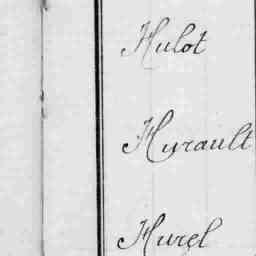 Hulot
Hurault
Hurel